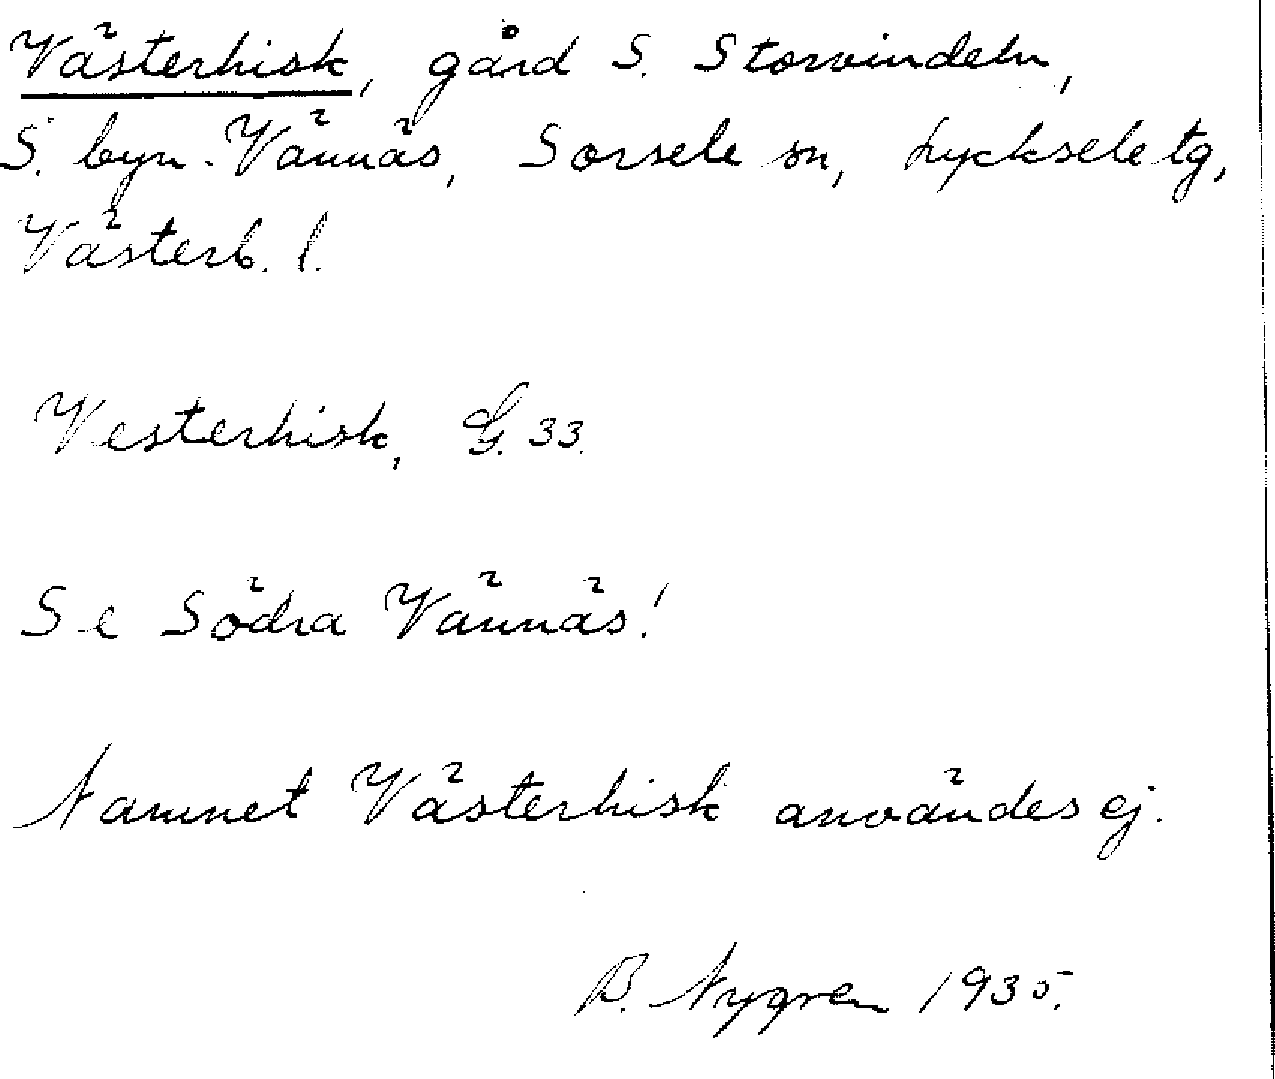 Västerhisk, gård S. Storvindeln,
S. byn Vännäs, Sorsele sn, Lycksele tg,
Västerb. l.
Vesterhisk, G. 33.
Se Södra Vännäs!
Namnet Västerhisk användes ej.
B. Nygren 1935.